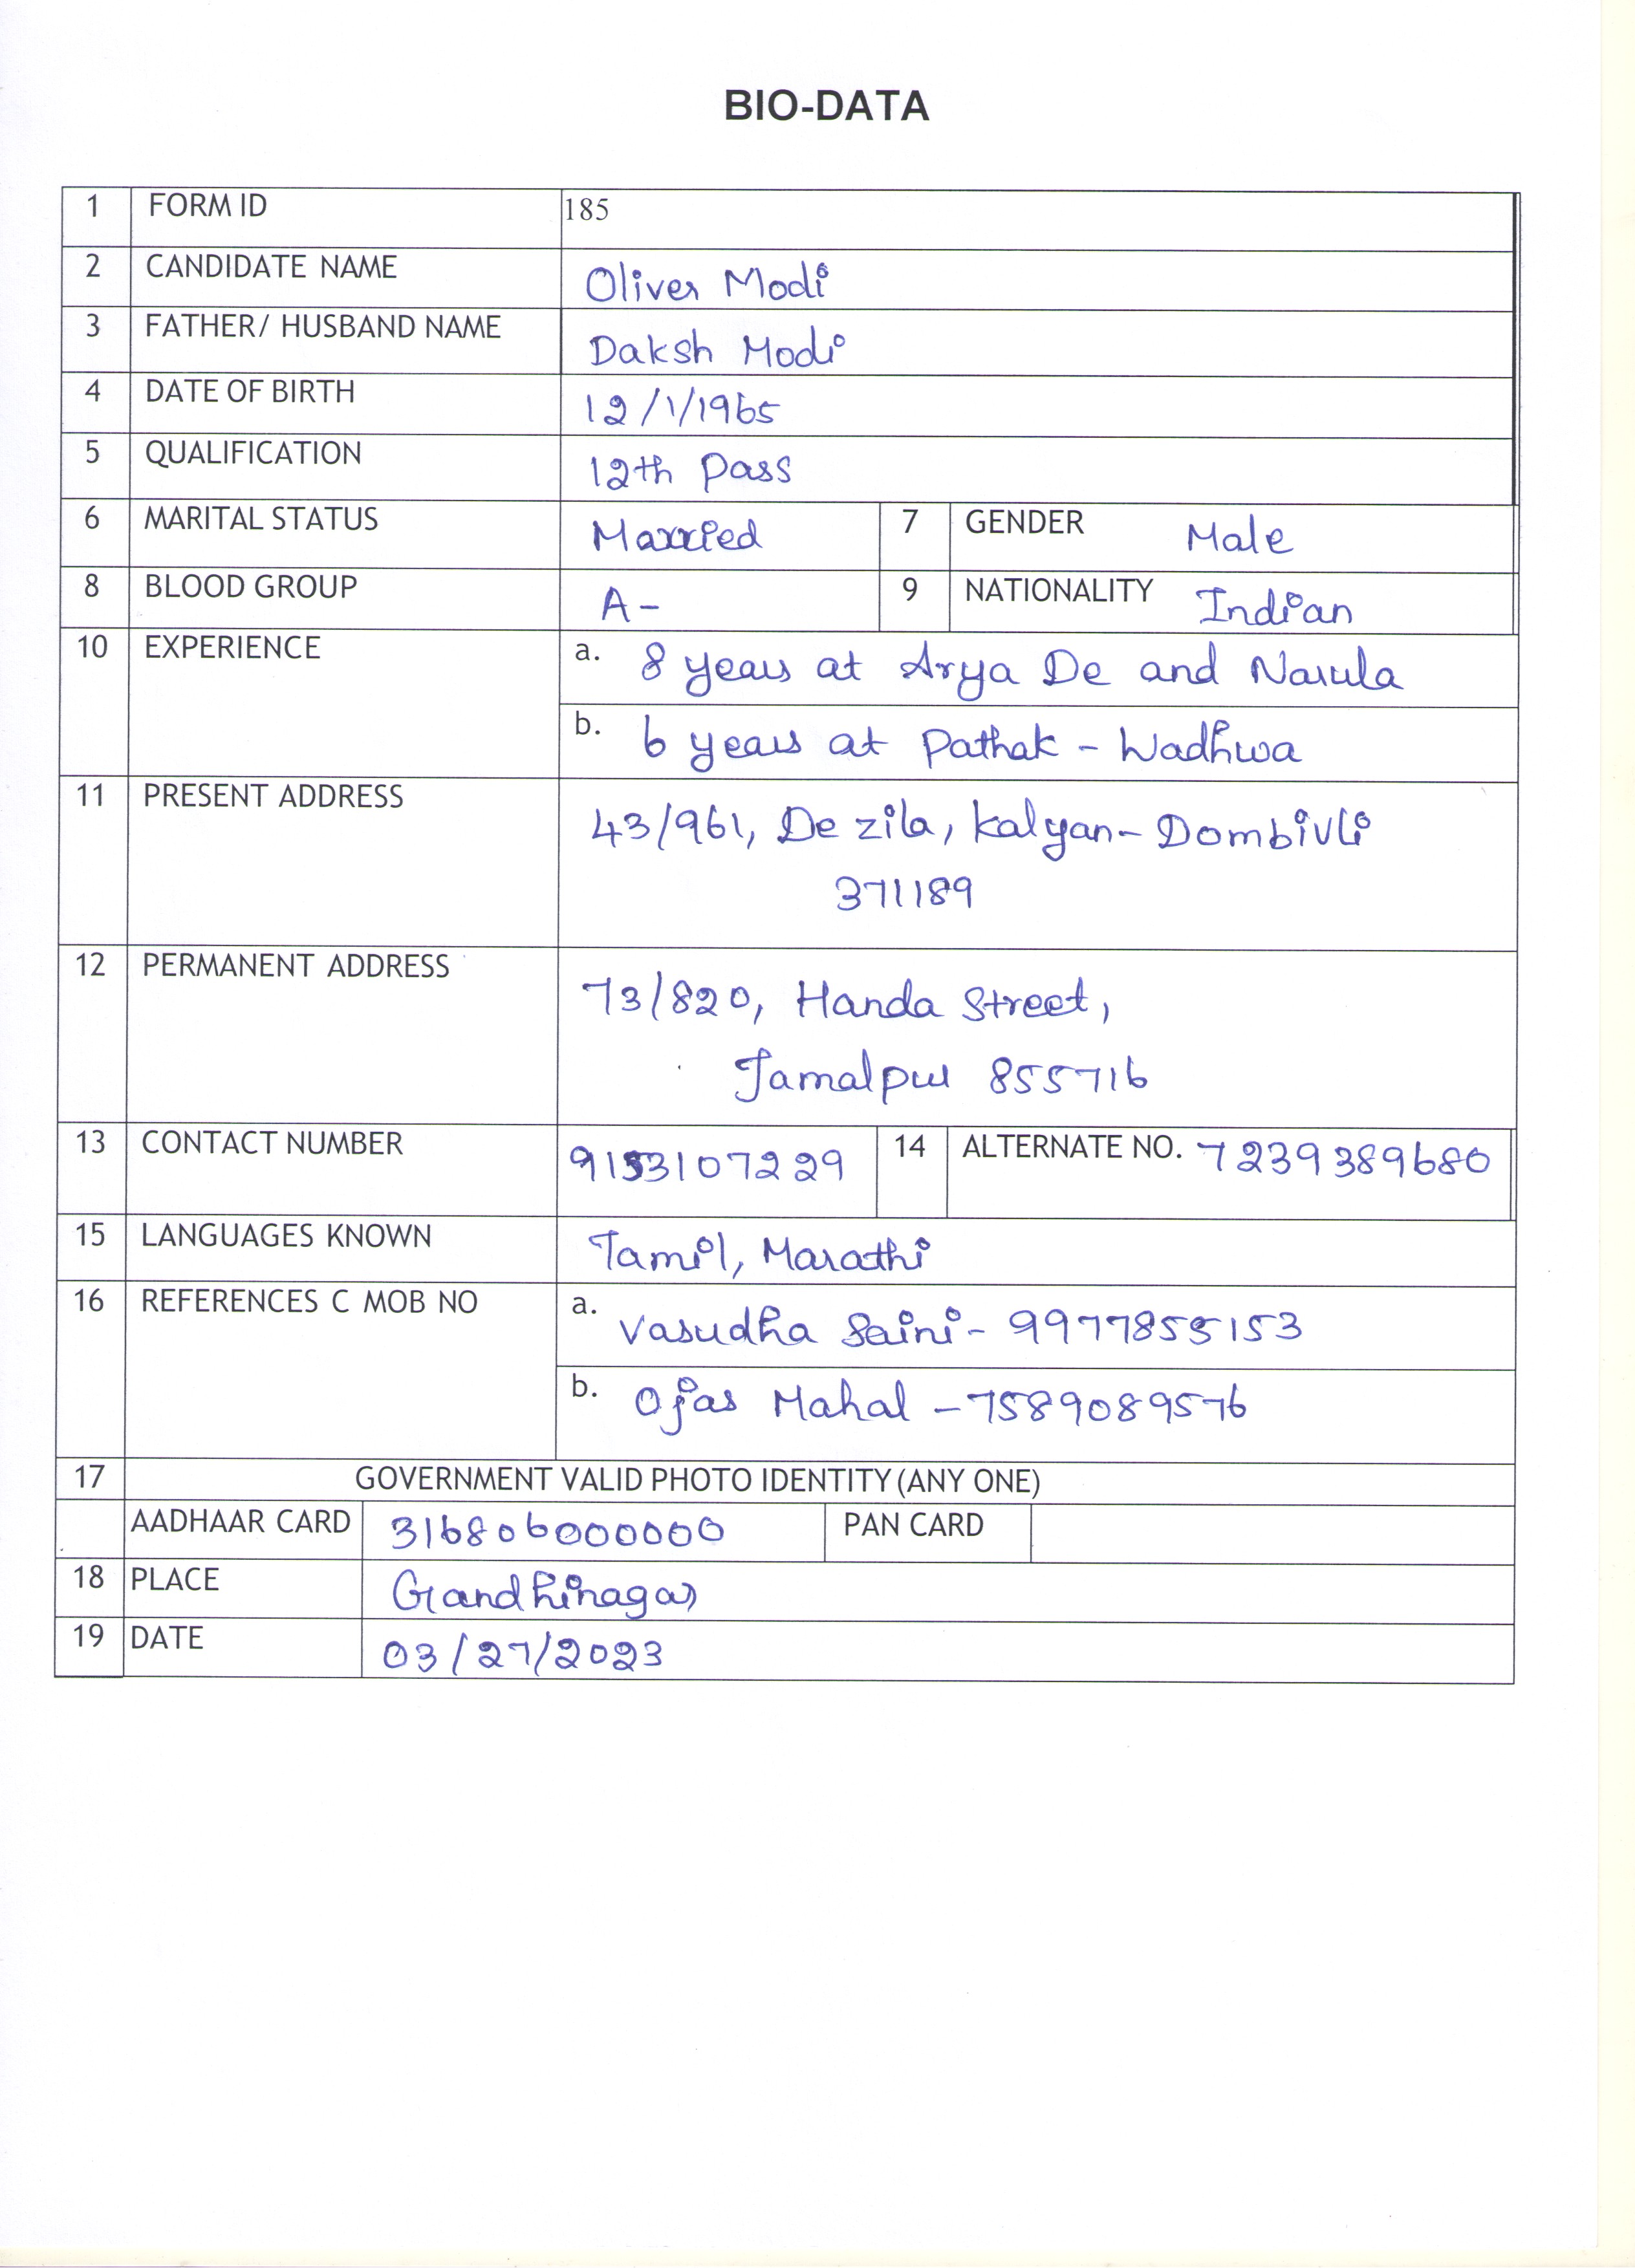 BIO-DATA
1 FORM ID 185
2 CANDIDATE NAME Oliver Modi
3 FATHER/ HUSBAND NAME Daksh Modi
4 DATE OF BIRTH 12/1/1965
5 QUALIFICATION 12th Pass
6 MARITAL STATUS Married 7 GENDER Male
8 BLOOD GROUP A- 9 NATIONALITY Indian
10 EXPERIENCE a. 8 years at Arya De and Narula
b. 6 years at Pathak - Wadhwa
11 PRESENT ADDRESS 43/961, De zila, Kalyan-Dombivli
371189
12 PERMANENT ADDRESS 73/820, Handa Street,
Jamalpur 855716
13 CONTACT NUMBER 9153107229 14 ALTERNATE NO. 7239389680
15 LANGUAGES KNOWN Tamil, Marathi
16 REFERENCES C MOB NO a. Vasudha Saini- 9977855153
b. Ojas Mahal -7589089576
17 GOVERNMENT VALID PHOTO IDENTITY (ANY ONE)
AADHAAR CARD 316806000000 PAN CARD
18 PLACE Gandhinagar
19 DATE 03/27/2023